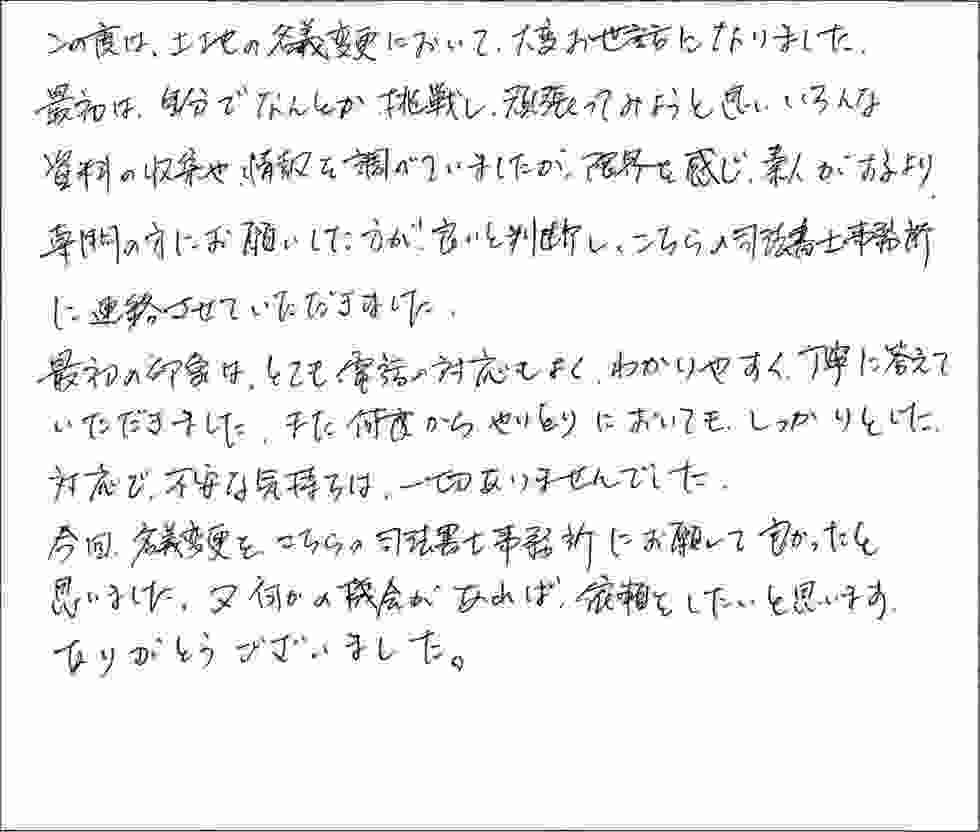 この度は、土地の名義変更において、大変お世話になりました。
最初は、自分でなんとか挑戦し、頑張ってみようと思い、いろんな
資料の収集や、情報を調べていましたが、限界を感じ、素人がするより、
専門の方にお願いした方が、良いと判断し、こちらの司法書士事務所
に連絡させていただきました。
最初の印象は、とても電話の対応もよく、わかりやすく、丁寧に答えて
いただきました。また何度かのやりとりにおいても、しっかりとした、
対応で、不安な気持ちは、一切ありませんでした。
今回、名義変更を、こちらの司法書士事務所にお願いして良かったと
思いました。又何かの機会があれば、依頼をしたいと思います。
ありがとうございました。